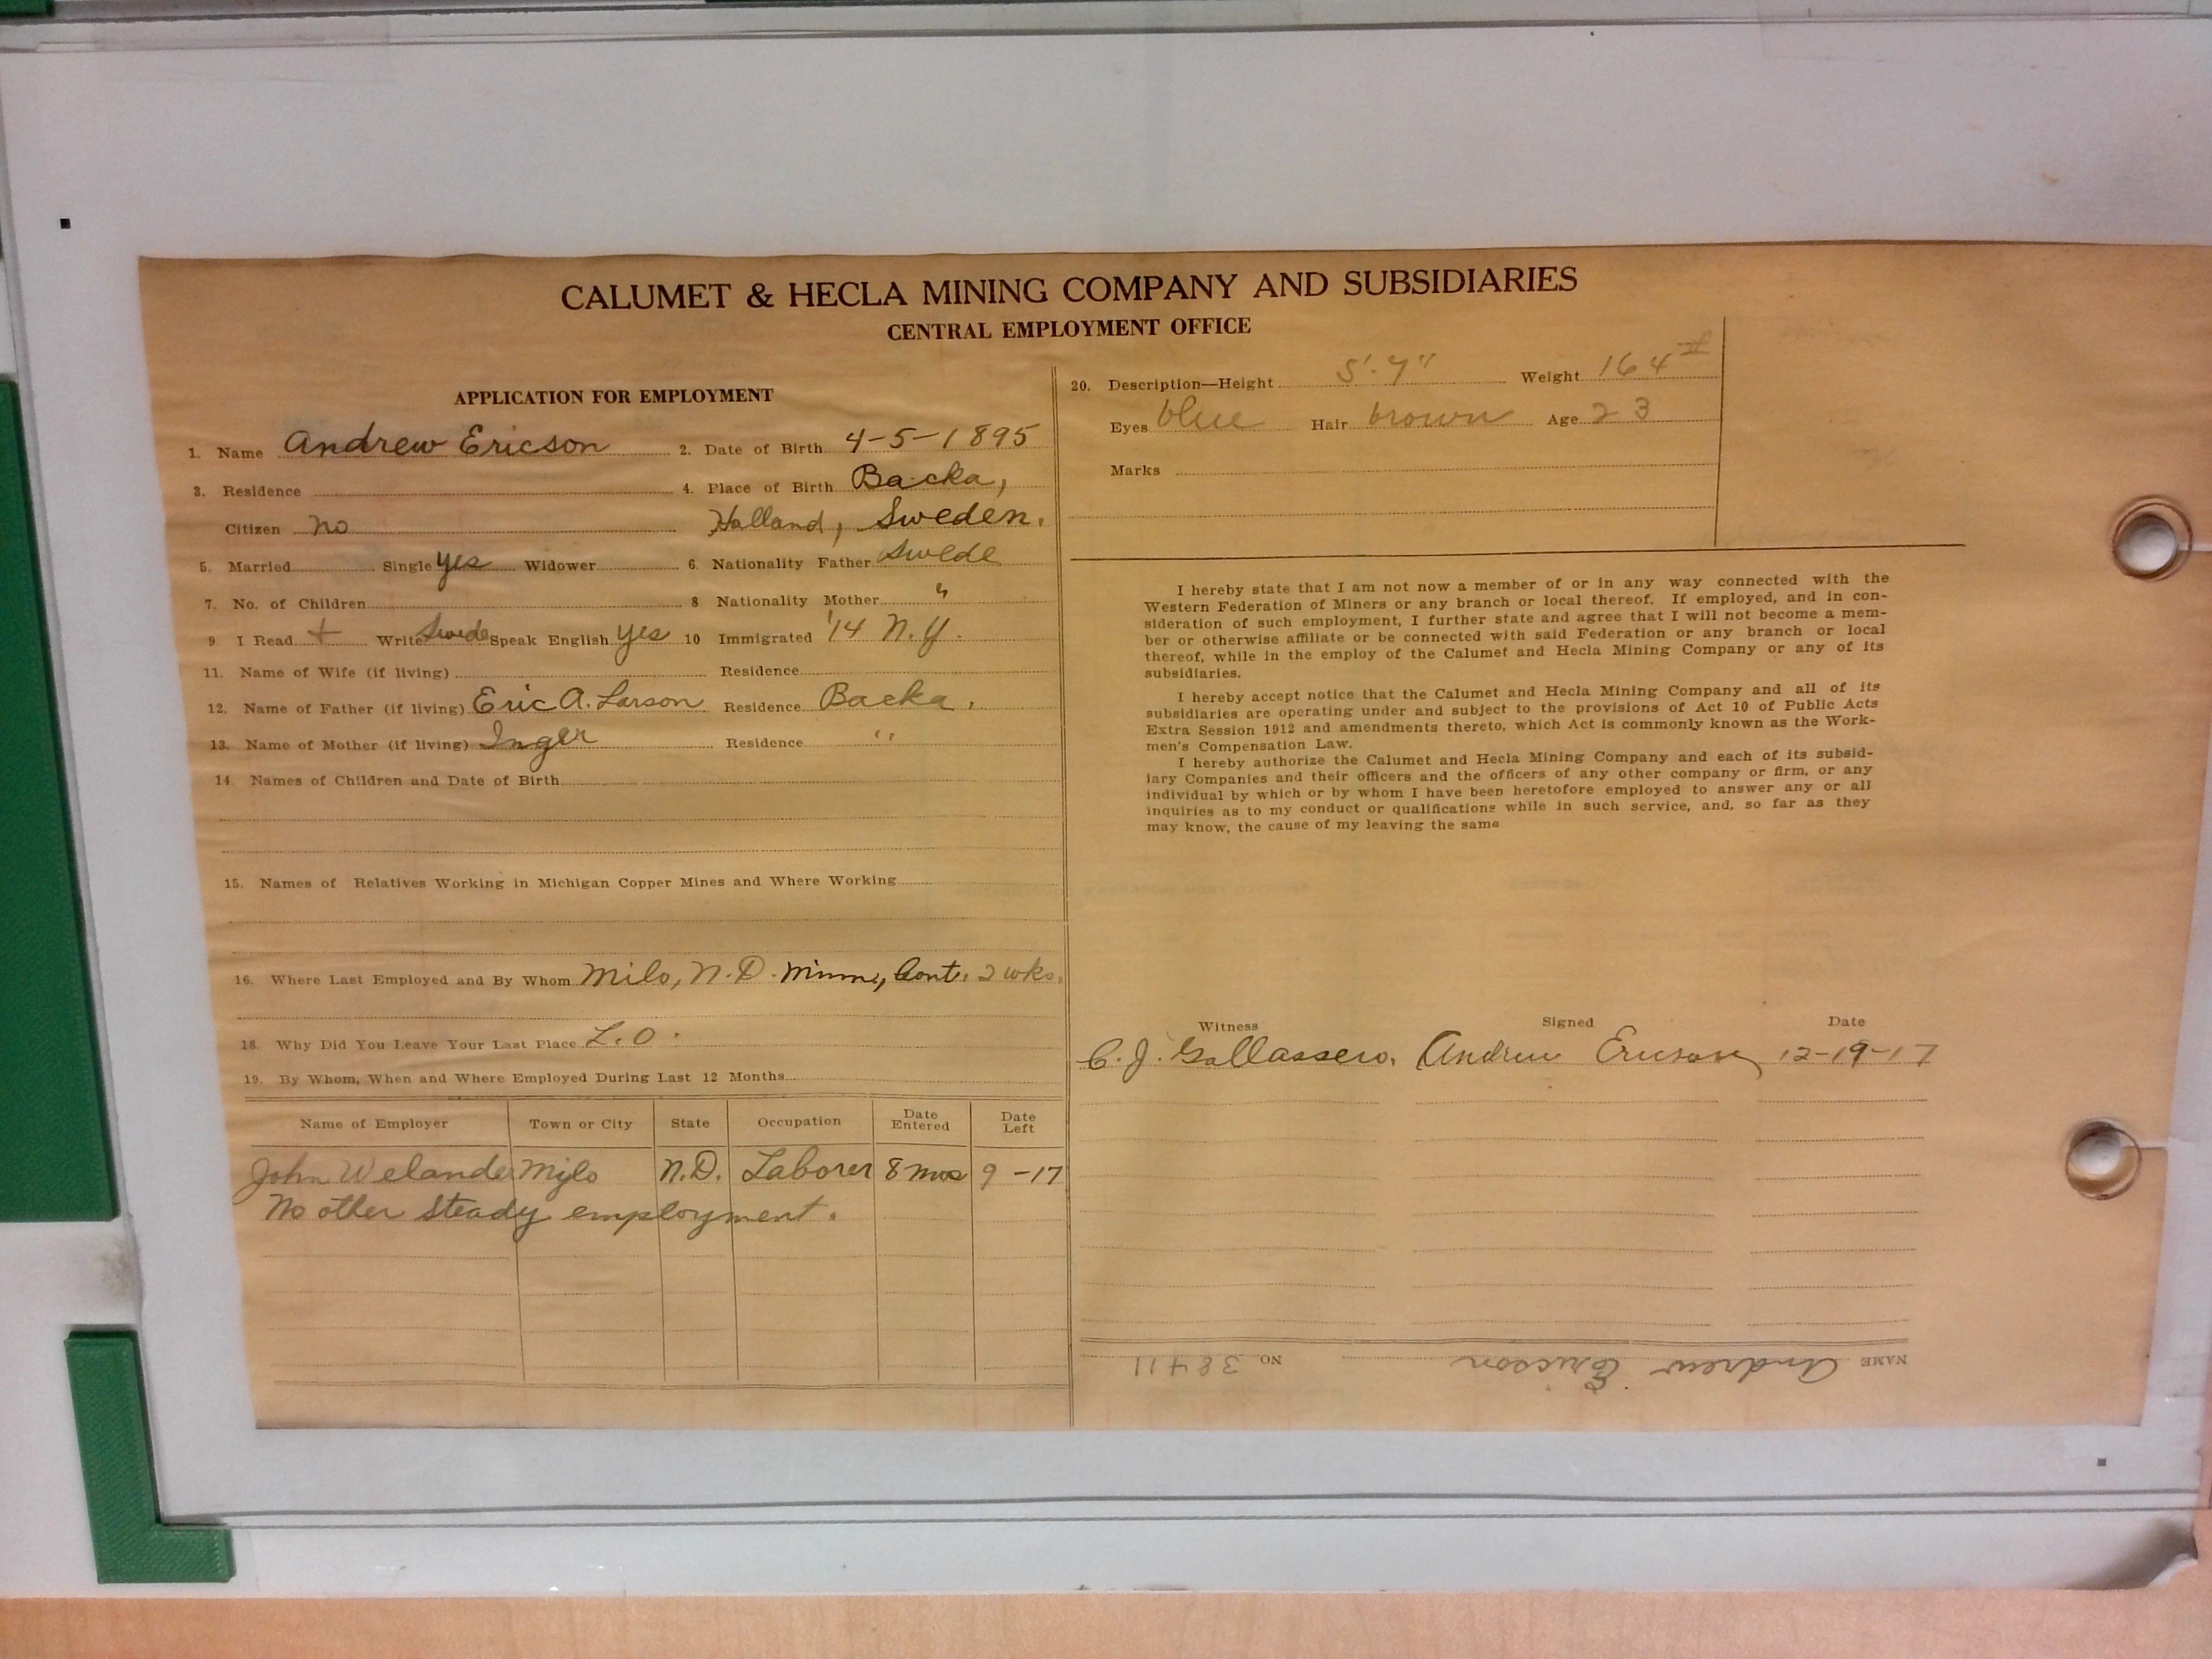 CALUMET & HECLA MINING COMPANY AND SUBSIDIARIES
CENTRAL EMPLOYMENT OFFICE
APPLICATION FOR EMPLOYMENT
1. Name Andrew Ericson 2. Date of Birth 4-5-1895
3. Residence 4. Place of Birth Backa,
Citizen no Halland, Sweden.
5. Married Single yes Widower 6. Nationality Father Swede
7. No. of Children 8 Nationality Mother "
9 I Read + Write Swede Speak English yes 10 Immigrated '14 N.Y.
11. Name of Wife (if living) Residence
12. Name of Father (if living) Eric A. Larson Residence Backa.
13. Name of Mother (if living) Inger Residence "
14. Names of Children and Date of Birth
15. Names of Relatives Working in Michigan Copper Mines and Where Working
16. Where Last Employed and By Whom Milo, N.D. Cont. 2 wks.
18. Why Did You Leave Your Last Place L.O.
19. By Whom, When and Where Employed During Last 12 Months
Name of Employer Town or City State Occupation Date Entered Date Left
John Welander Milo N.D. Laborer 8 mos 9-17
No other steady employment.
20. Description—Height 5'.7" Weight 164#
Eyes blue Hair brown Age 23
Marks
I hereby state that I am not now a member of or in any way connected with the
Western Federation of Miners or any branch or local thereof. If employed, and in con-
sideration of such employment, I further state and agree that I will not become a mem-
ber or otherwise affiliate or be connected with said Federation or any branch or local
thereof, while in the employ of the Calumet and Hecla Mining Company or any of its
subsidiaries.
I hereby accept notice that the Calumet and Hecla Mining Company and all of its
subsidiaries are operating under and subject to the provisions of Act 10 of Public Acts
Extra Session 1912 and amendments thereto, which Act is commonly known as the Work-
men's Compensation Law.
I hereby authorize the Calumet and Hecla Mining Company and each of its subsid-
iary Companies and their officers and the officers of any other company or firm, or any
individual by which or by whom I have been heretofore employed to answer any or all
inquiries as to my conduct or qualifications while in such service, and, so far as they
may know, the cause of my leaving the same
Witness Signed Date
C. J. Gallassero. Andrew Ericson 12-19-17
NAME Andrew Ericson NO. 38411